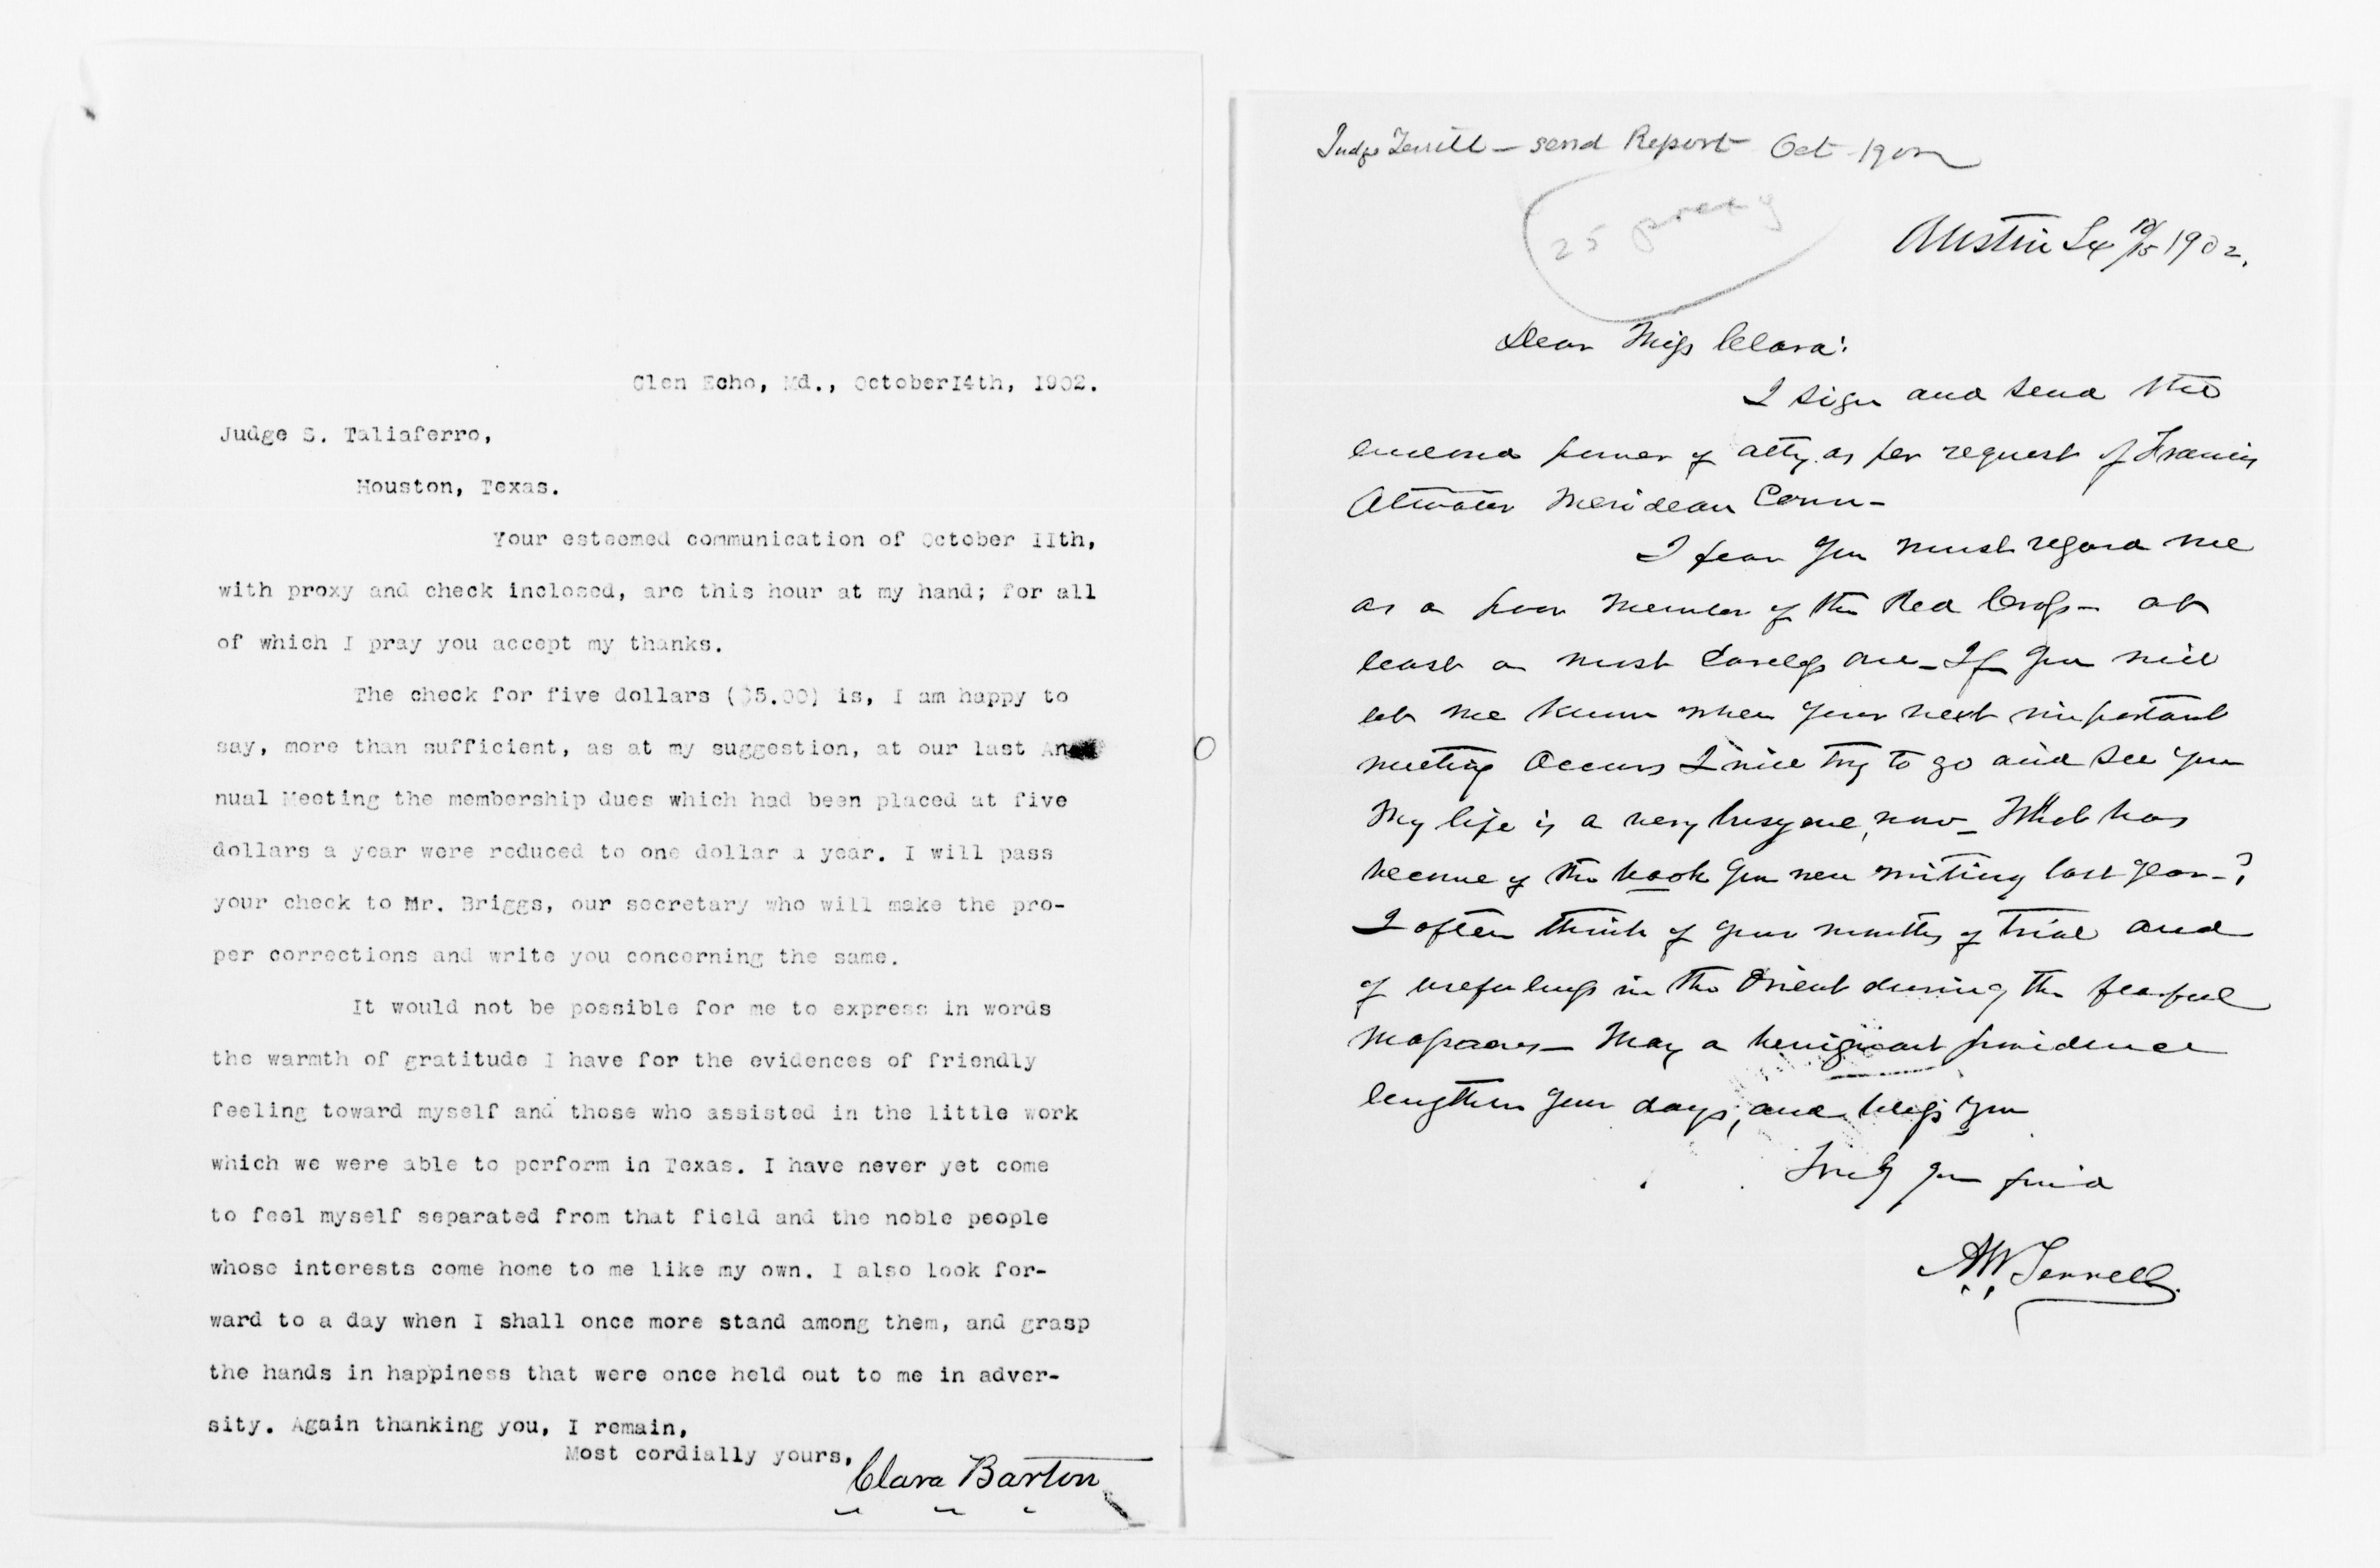 Glen Echo, Md., October14th, 1902.
Judge S. Taliaferro,
Houston, Texas.
Your esteemed communication of October IIth,
with proxy and check inclosed, are this hour at my hand; for all
of which I pray you accept my thanks.
The check for five dollars ($5.00) is, I am happy to
say, more than sufficient, as at my suggestion, at our last An
nual Meeting the membership dues which had been placed at five
dollars a year were reduced to one dollar a year. I will pass
your check to Mr. Briggs, our secretary who will make the pro-
per corrections and write you concerning the same.
It would not be possible for me to express in words
the warmth of gratitude I have for the evidences of friendly
feeling toward myself and those who assisted in the little work
which we were able to perform in Texas. I have never yet come
to feel myself separated from that field and the noble people
whose interests come home to me like my own. I also look for-
ward to a day when I shall once more stand among them, and grasp
the hands in happiness that were once held out to me in adver-
sity. Again thanking you, I remain,
Most cordially yours,
Clara Barton
Judge - send Report Oct 1902
25 proxy
Austin Tx 10/15 1902.
Dear Miss Clara:
I sign and send the
enclosed power of atty. as per request of Francis
Atwater Meridean Conn-
I fear you must regard me
as a poor member of the Red Cross - at
least a most careless one - If you will
let me know when your next important
meeting occurs I will try to go and see you
My life is a very busy one, now - What has
become of the book you were writing last year - ?
I often think of your months of trial and
of usefulness in the Orient during the fearful
massacres - May a benignant providence
lengthen your days, and bless you
Truly your friend
A.W. Terrell